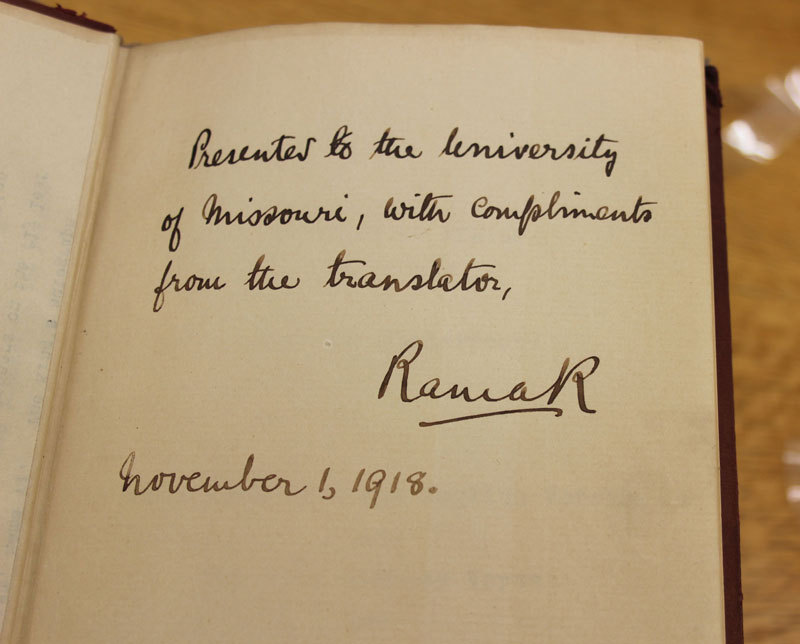 Presented to the University
of Missouri, with compliments
from the translator,
RamaK
November 1, 1918.